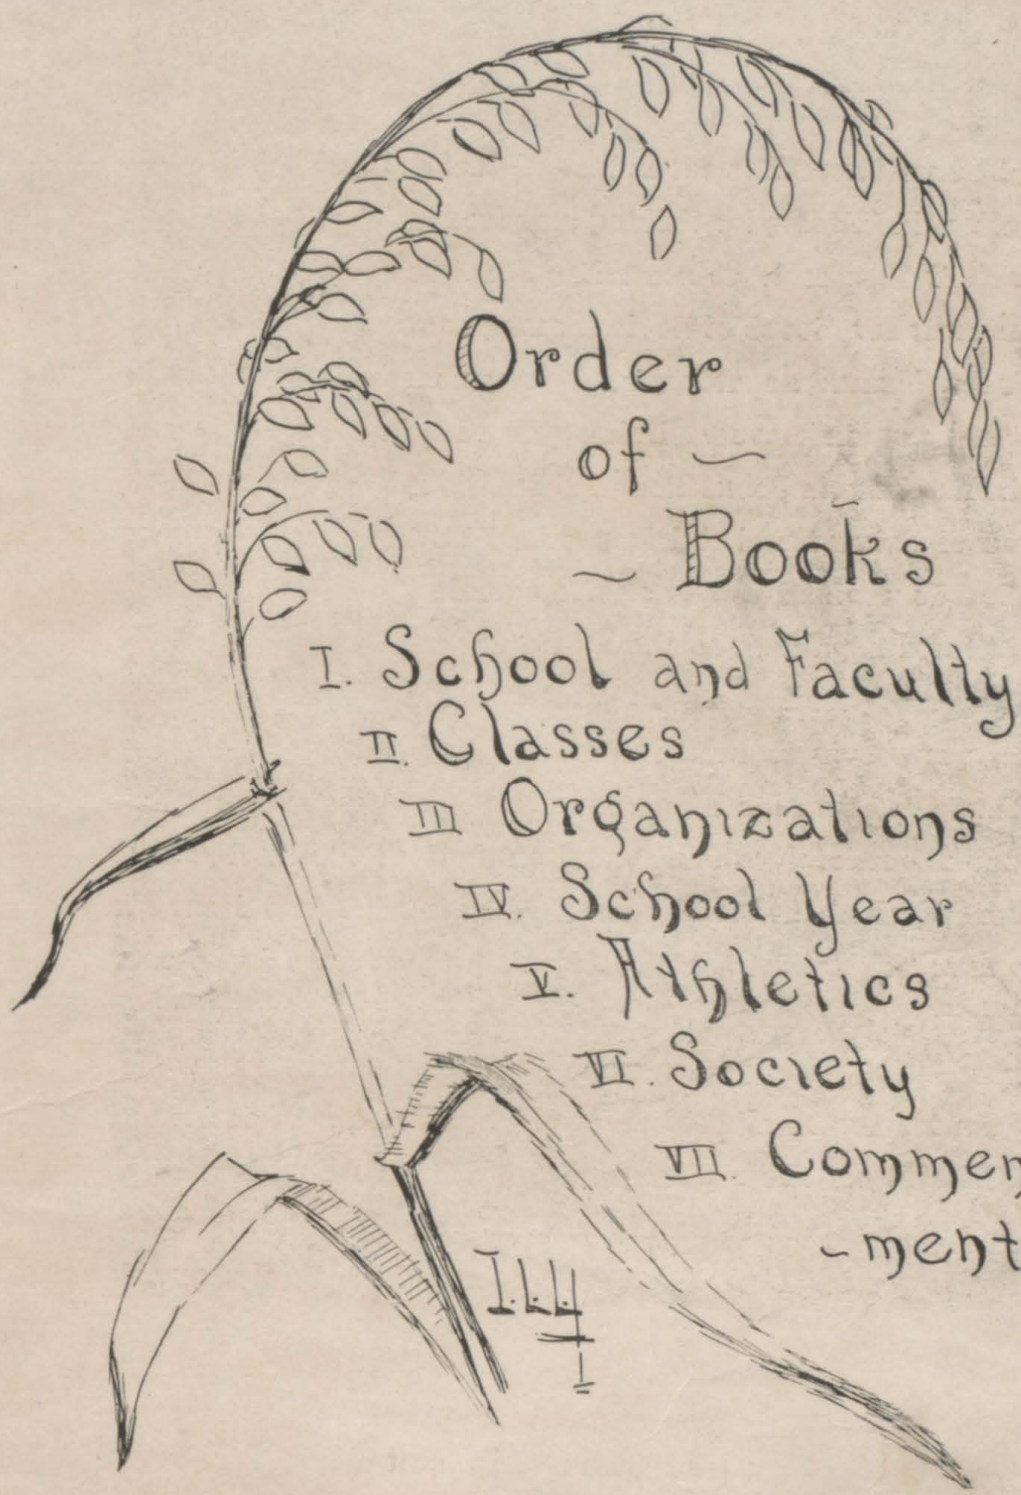 Order
of ~
~ Books
I. School and Faculty
II. Classes
III Organizations
IV. School Year
V. Athletics
VI. Society
VII. Commen
-ment